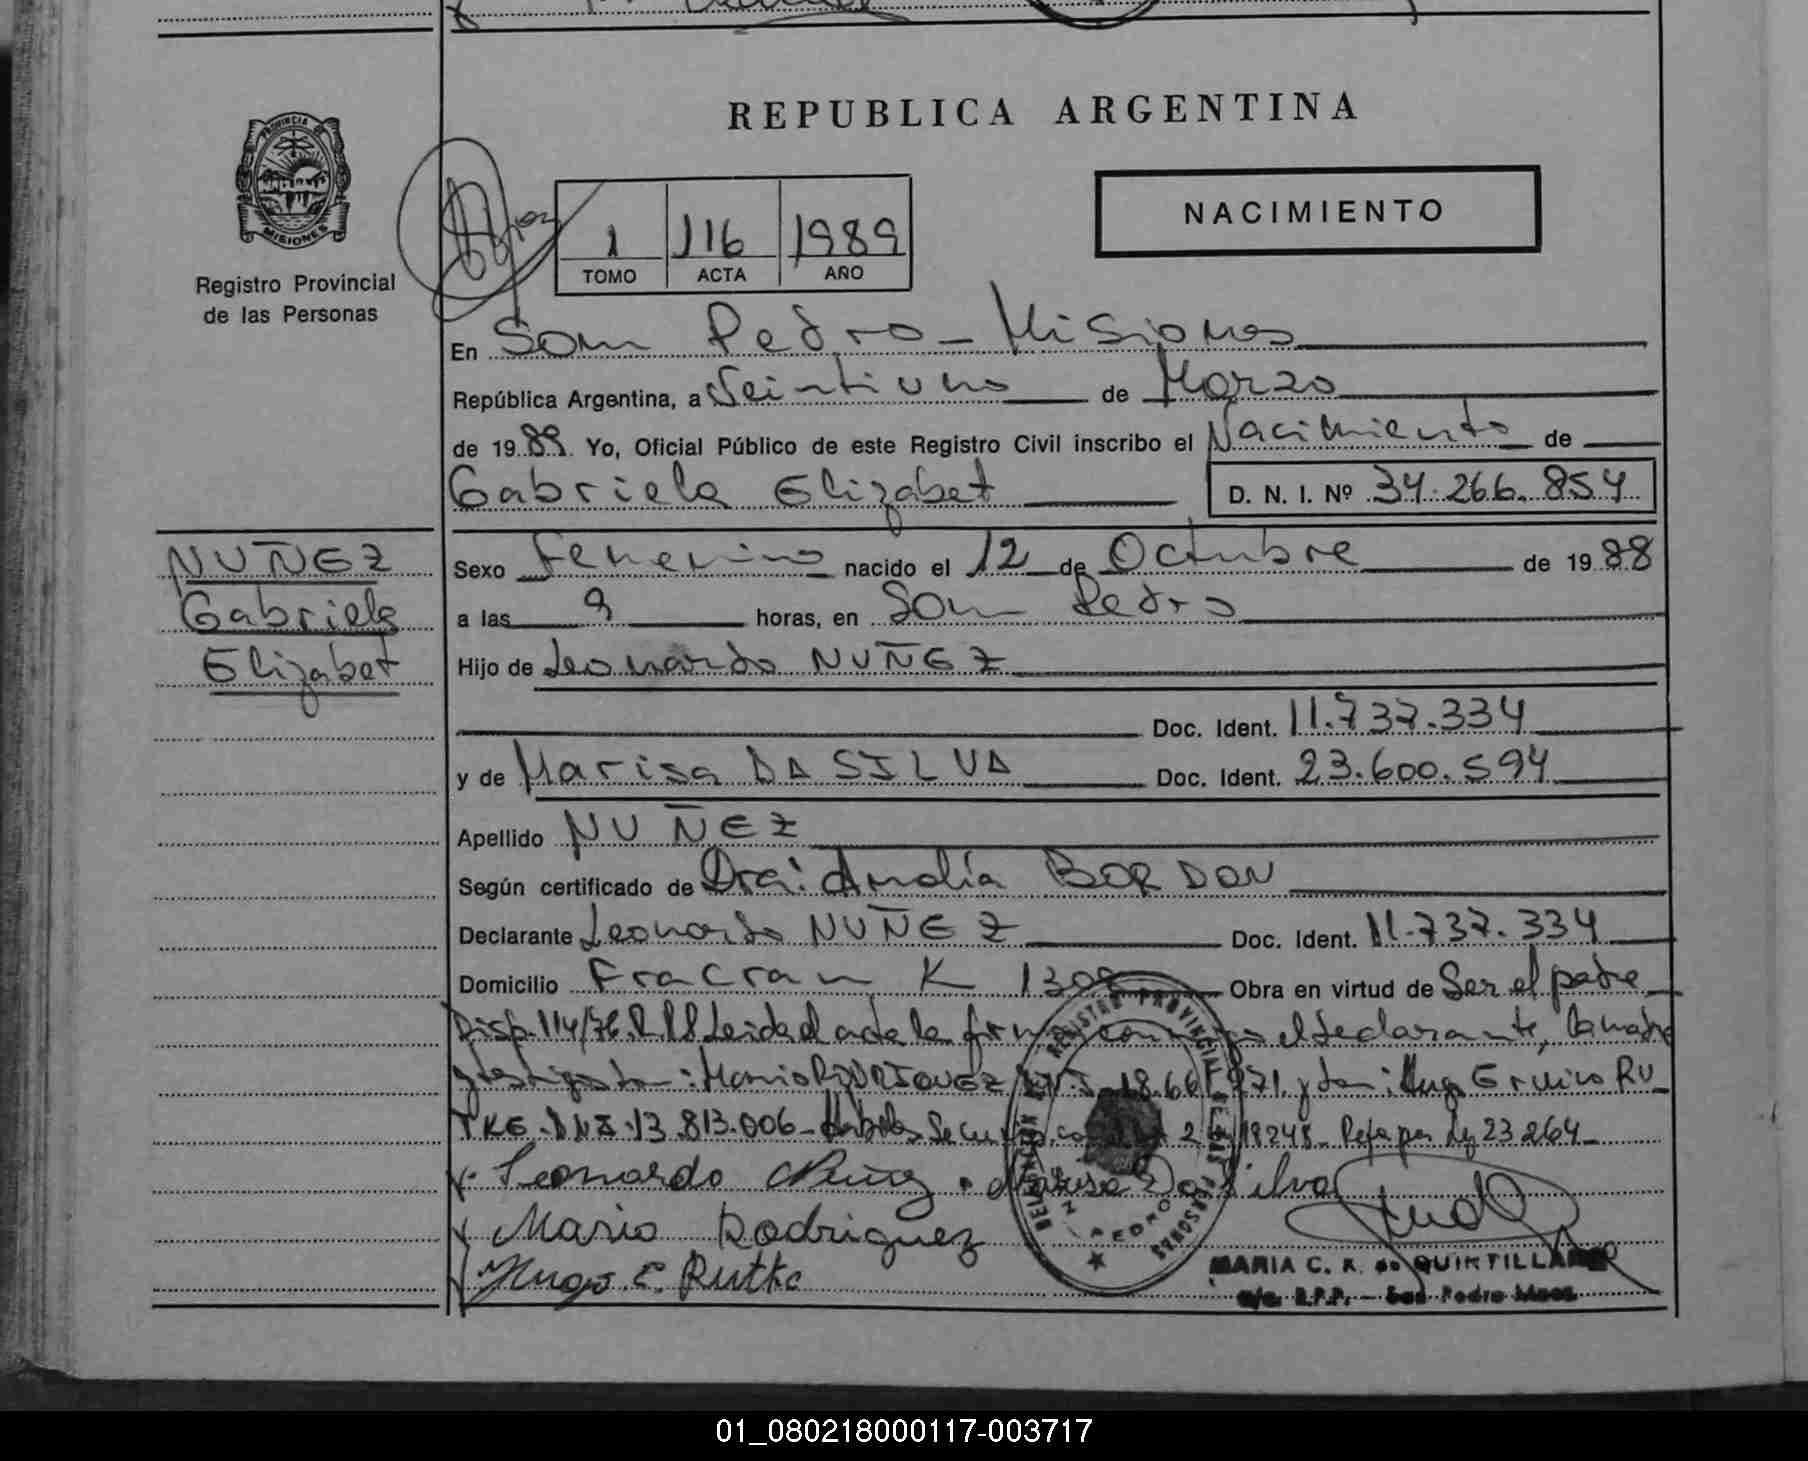 REPUBLICA ARGENTINA
PROVINCIA DE
MISIONES
Registro Provincial
de las Personas
1 116 1989
TOMO ACTA AÑO
NACIMIENTO
En San Pedro - Misiones
República Argentina, a Veintiuno de Marzo
de 1989 Yo, Oficial Público de este Registro Civil inscribo el Nacimiento de
Gabriela Elizabet D. N. I. Nº 34.266.854
NUÑEZ
Gabriela
Elizabet
Sexo Femenino nacido el 12 de Octubre de 1988
a las 9 horas, en San Pedro
Hijo de Leonardo NUÑEZ
Doc. Ident. 11.737.334
y de Marisa DA SILVA Doc. Ident. 23.600.594
Apellido NUÑEZ
Según certificado de Dra: Analía BORDON
Declarante Leonardo NUÑEZ Doc. Ident. 11.737.334
Domicilio Fracran K 1308 Obra en virtud de Ser el padre
Disp. 114/76 R.P.P. Leida el acta la firman conmigo el declarante, la madre
y testigos Don: Mario RODRIGUEZ 18.66 971 y Don: Hugo Ervino RU-
TKE. DNI. 13.813.006 - 18248 - Refa por Ley 23264
Leonardo Nuñez. Marisa Da Silva
Mario Rodriguez
Hugo E. Rutke
REGISTRO PROVINCIAL DE LAS PERSONAS
SAN PEDRO
MARIA C. R. de QUINTILLAN
a/c. R.P.P. - San Pedro Mnes.
01_080218000117-003717